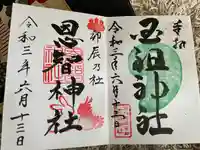 奉拝
玉祖神社
令和三年六月十三日
卯辰乃社
恩智神社
令和三年六月十三日